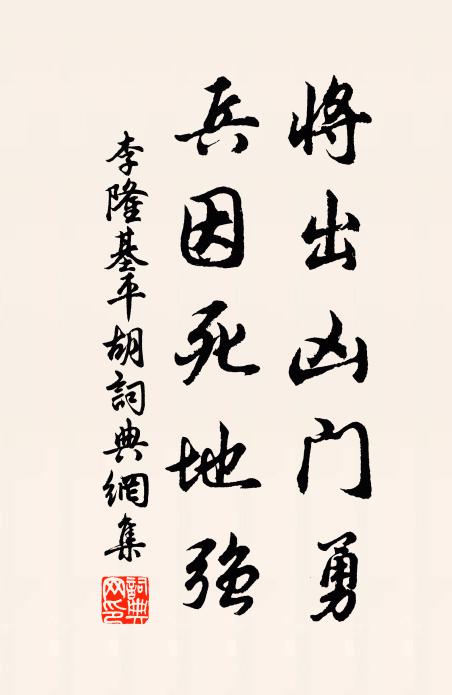 将出凶门勇
兵因死地强
李隆基平胡詞典網集
詞典网印